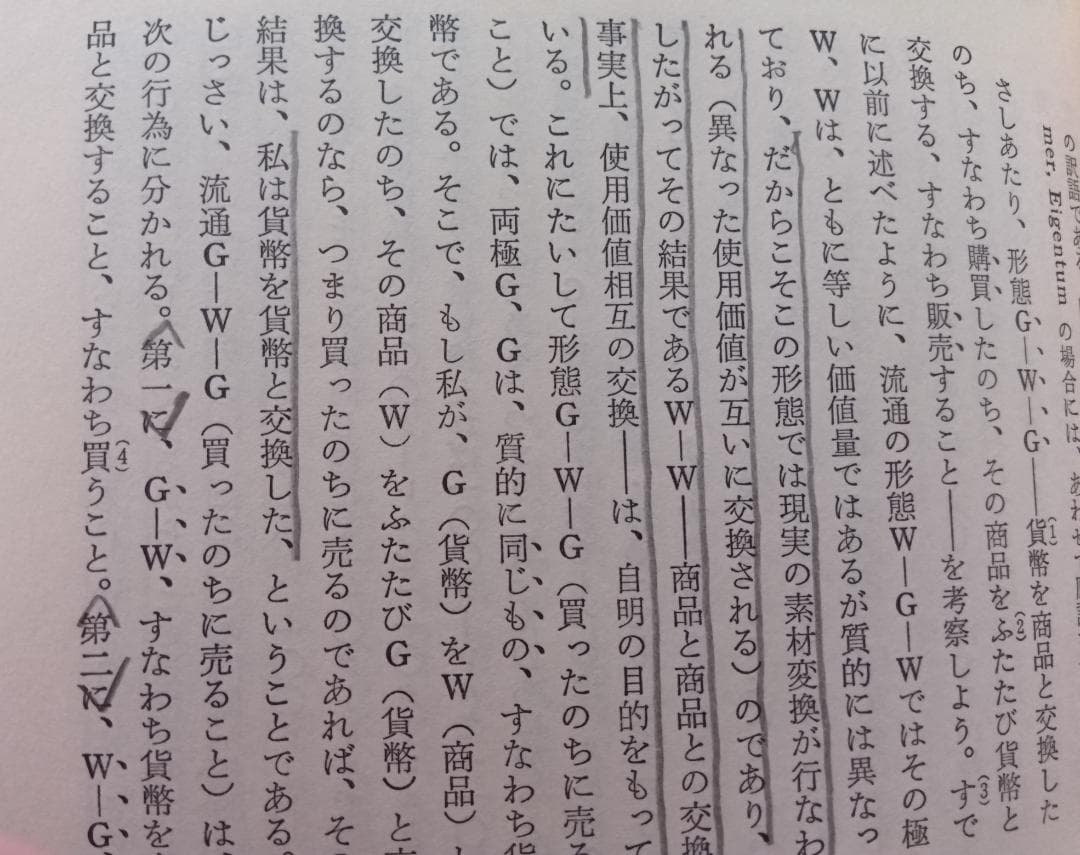 の訳語である
mer, Eigentum の場合には、あわせて
さしあたり、形態G―W―G――貨幣を商品と交換した
のち、すなわち購買したのち、その商品をふたたび貨幣と
交換する、すなわち販売すること――を考察しよう。すで
に以前に述べたように、流通の形態W―G―Wではその極
W、Wは、ともに等しい価値量ではあるが質的には異なっ
ており、だからこそこの形態では現実の素材変換が行なわ
れる(異なった使用価値が互いに交換される)のであり、
したがってその結果であるW―W――商品と商品との交換
事実上、使用価値相互の交換――は、自明の目的をもって
いる。これにたいして形態G―W―G(買ったのちに売る
こと)では、両極G、Gは、質的に同じもの、すなわち貨
幣である。そこで、もし私が、G(貨幣)をW(商品)
交換したのち、その商品(W)をふたたびG(貨幣)と
換するのなら、つまり買ったのちに売るのであれば、そ
結果は、私は貨幣を貨幣と交換した、ということである。
じっさい、流通G―W―G(買ったのちに売ること)は、
次の行為に分かれる。第一に、G―W、すなわち貨幣を
品と交換すること、すなわち買うこと。第二に、W―G、
(1)
(2)
(3)
(4)